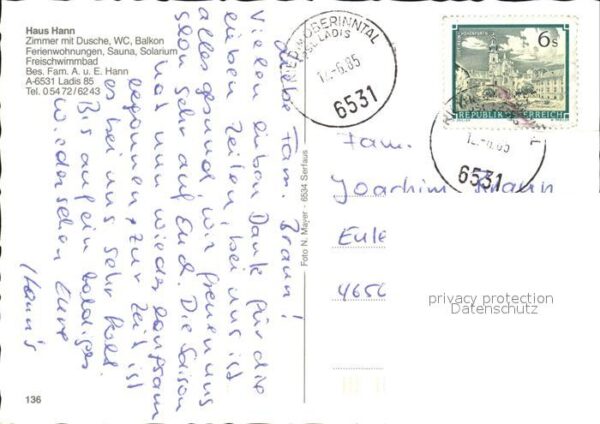 Haus Hann
Zimmer mit Dusche, WC, Balkon
Ferienwohnungen, Sauna, Solarium
Freischwimmbad
Bes. Fam. A. u. E. Hann
A-6531 Ladis 85
Tel. 0 54 72 / 62 43
Liebe Fam. Braun!
Vielen lieben Dank für die
lieben Zeilen, bei uns ist
alles gesund, wir freuen uns
schon sehr auf Euch. Die Saison
hat nun wieder langsam
begonnen, zur Zeit ist
es bei uns sehr kalt
Bis auf ein baldiges
Wiedersehen Eure
Hann's
136
Foto N. Mayer - 6534 Serfaus
OBERINNTAL
LADIS
12.-6.85
6531
6 s
REPUBLIK ÖSTERREICH
12.-6.85
6531
Fam.
Joachim Braun
Eule
4650
privacy protection
Datenschutz